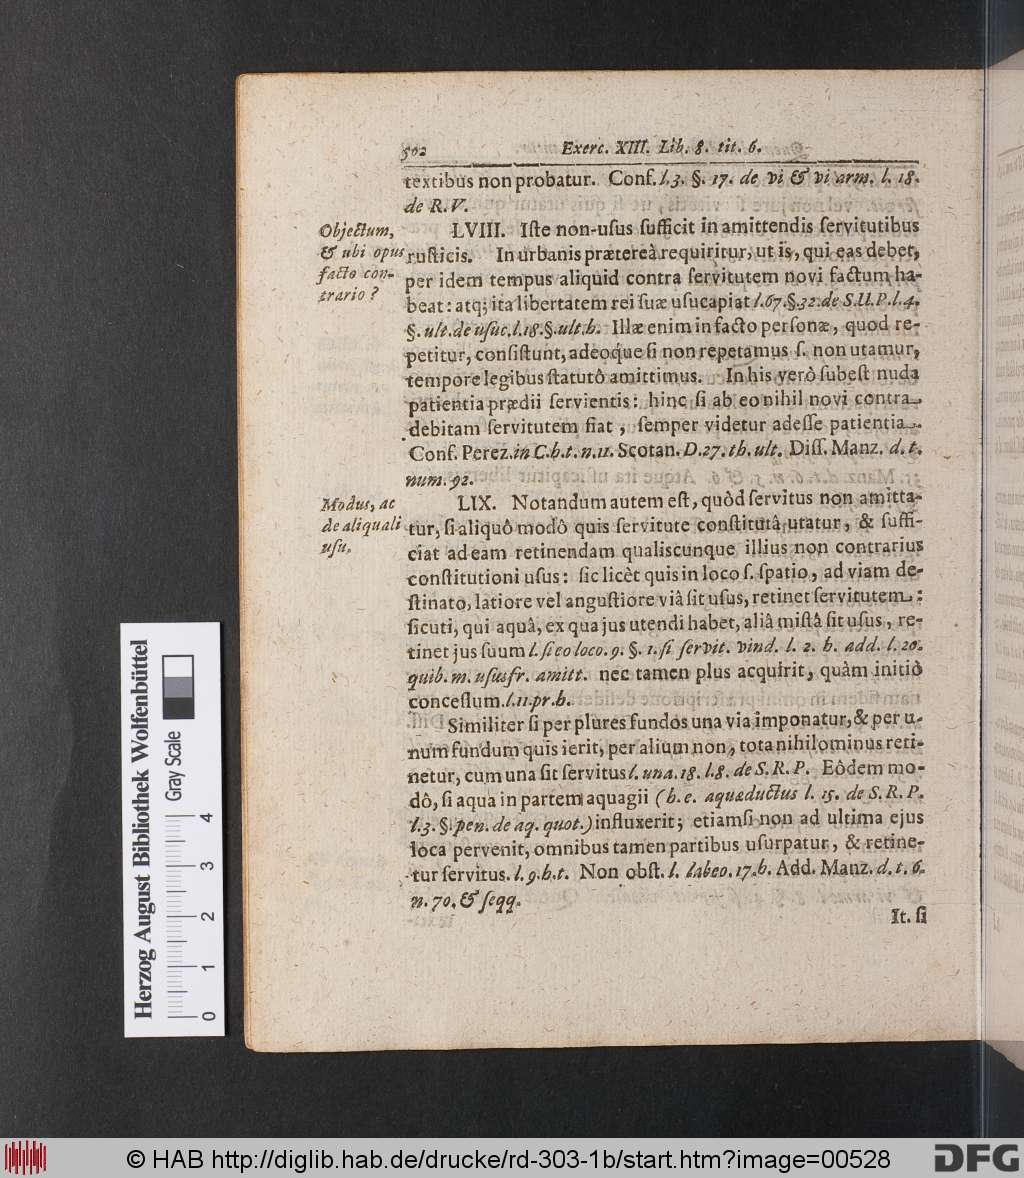 502 Exerc. XIII. Lib. 8. tit. 6.
textibus non probatur. Conf. l. 3. §. 17. de vi & vi arm. l. 18.
de R. V.
Objectum,
& ubi opus
facto con-
trario?
LVIII. Iſte non-uſus ſufficit in amittendis ſervitutibus
ruſticis. In urbanis prætereà requiritur, ut is, qui eas debet,
per idem tempus aliquid contra ſervitutem novi factum ha-
beat: atq; ita libertatem rei ſuæ uſucapiat l. 67. §. 32. de S. U. P. l. 4.
§. ult. de uſuc. l. 18. §. ult. h. Illæ enim in facto perſonæ, quod re-
petitur, conſiſtunt, adeoq́ue ſi non repetamus ſ. non utamur,
tempore legibus ſtatutô amittimus. In his verò ſubeſt nuda
patientia prædii ſervientis: hinc ſi ab eo nihil novi contra
debitam ſervitutem fiat, ſemper videtur adeſſe patientia.
Conf. Perez. in C. h. t. n. 11. Scotan. D. 27. th. ult. Diſſ. Manz. d. t.
num. 92.
Modus, ac
de aliquali
uſu.
LIX. Notandum autem eſt, quôd ſervitus non amitta-
tur, ſi aliquô modô quis ſervitute conſtitutâ utatur, & ſuffi-
ciat ad eam retinendam qualiscunque illius non contrarius
conſtitutioni uſus: ſic licèt quis in loco ſ. ſpatio, ad viam de-
ſtinato, latiore vel anguſtiore viâ ſit uſus, retinet ſervitutem:
ſicuti, qui aquâ, ex qua jus utendi habet, aliâ miſtâ ſit uſus, re-
tinet jus ſuum l. ſi eo loco. 9. §. 1. ſi ſervit. vind. l. 2. h. add. l. 20.
quib. m. uſusfr. amitt. nec tamen plus acquirit, quàm initiò
conceſſum. l. 11. pr. h.
Similiter ſi per plures fundos una via imponatur, & per u-
num fundum quis ierit, per alium non, tota nihilominus reti-
netur, cum una ſit ſervitus l. una. 18. l. 8. de S. R. P. Eôdem mo-
dô, ſi aqua in partem aquagii (h. e. aquæductus l. 15. de S. R. P.
l. 3. §. pen. de aq. quot.) influxerit; etiamſi non ad ultima ejus
loca pervenit, omnibus tamen partibus uſurpatur, & retine-
tur ſervitus. l. 9. h. t. Non obſt. l. labeo. 17. h. Add. Manz. d. t. 6.
n. 70. & ſeqq.
It. ſi
Herzog August Bibliothek Wolfenbüttel
Gray Scale
0 1 2 3 4
© HAB http://diglib.hab.de/drucke/rd-303-1b/start.htm?image=00528
DFG